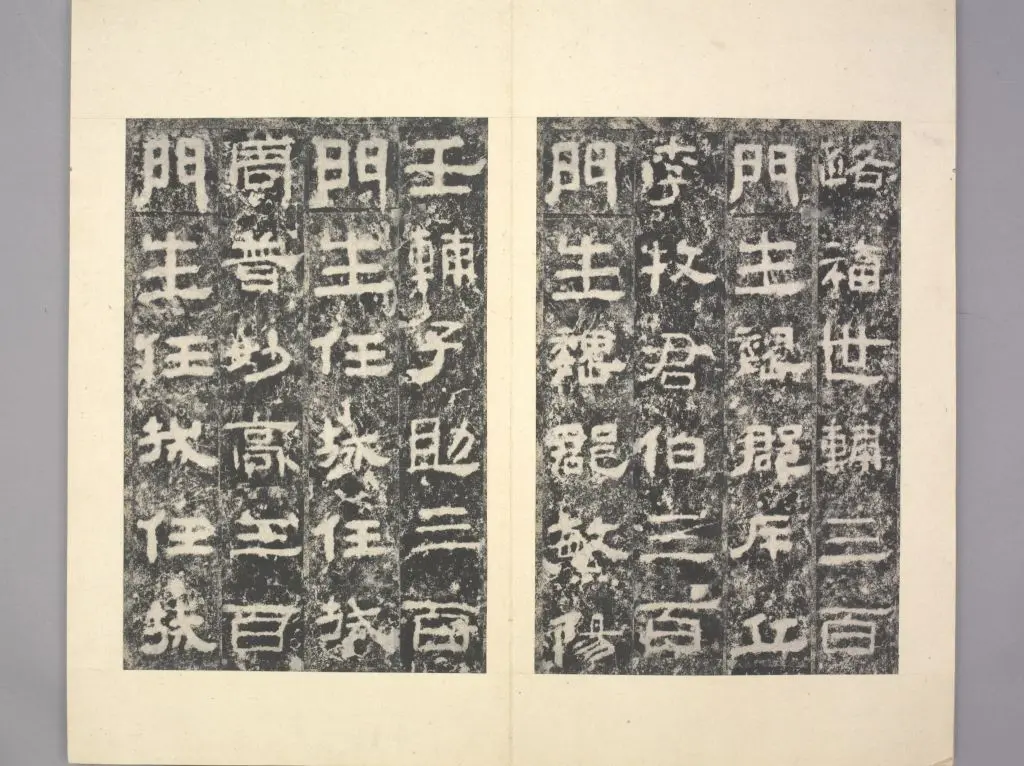 路福世輔三百
門生魏郡斥丘
李牧君伯三百
門生魏郡繁陽
王輔子助二百
門生任城任城
周普妙高二百
門生任城任城